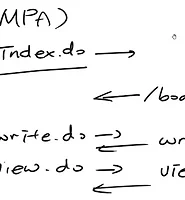 MPA)
index.do →
← /boa
write.do → wr
view.do → vie